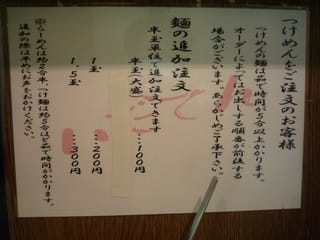 つけめんをご注文のお客様
つけめんの麺は茹で時間が5分以上かかります。
オーダーによってはお出しする順番が前後する
場合がございます。あらかじめご了承下さい。
麺の追加注文
半玉単位で追加注文できます
半玉大盛…100円
1玉…200円
1.5玉…300円
※らーめんは約2分半つけ麺は約5分ほど茹で時間がかかります。
追加の際は早めにお声をおかけください。